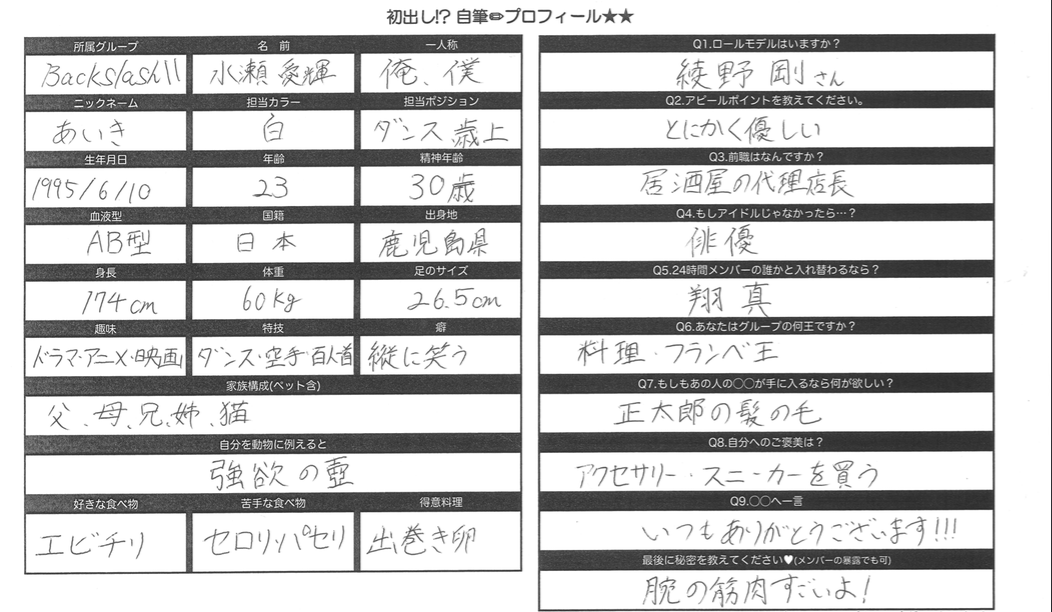 初出し!? 自筆✏プロフィール★★
所属グループ 名 前 一人称
Backslash\\ 水瀬 愛輝 俺、僕
ニックネーム 担当カラー 担当ポジション
あいき 白 ダンス 歳上
生年月日 年齢 精神年齢
1995/6/10 23 30歳
血液型 国籍 出身地
AB型 日本 鹿児島県
身長 体重 足のサイズ
174cm 60kg 26.5cm
趣味 特技 癖
ドラマ・アニメ・映画 ダンス・空手・百人首 縦に笑う
家族構成(ペット含)
父、母、兄、姉、猫
自分を動物に例えると
強欲の壺
好きな食べ物 苦手な食べ物 得意料理
エビチリ セロリ、パセリ 出巻き卵
Q1.ロールモデルはいますか？
綾野 剛さん
Q2.アピールポイントを教えてください。
とにかく優しい
Q3.前職はなんですか？
居酒屋の代理店長
Q4.もしアイドルじゃなかったら…？
俳優
Q5.24時間メンバーの誰かと入れ替わるなら？
翔真
Q6.あなたはグループの何王ですか？
料理・フランベ王
Q7.もしもあの人の○○が手に入るなら何が欲しい？
正太郎の髪の毛
Q8.自分へのご褒美は？
アクセサリー・スニーカーを買う
Q9.○○へ一言
いつもありがとうございます!!!
最後に秘密を教えてください♥(メンバーの暴露でも可)
腕の筋肉すごいよ!